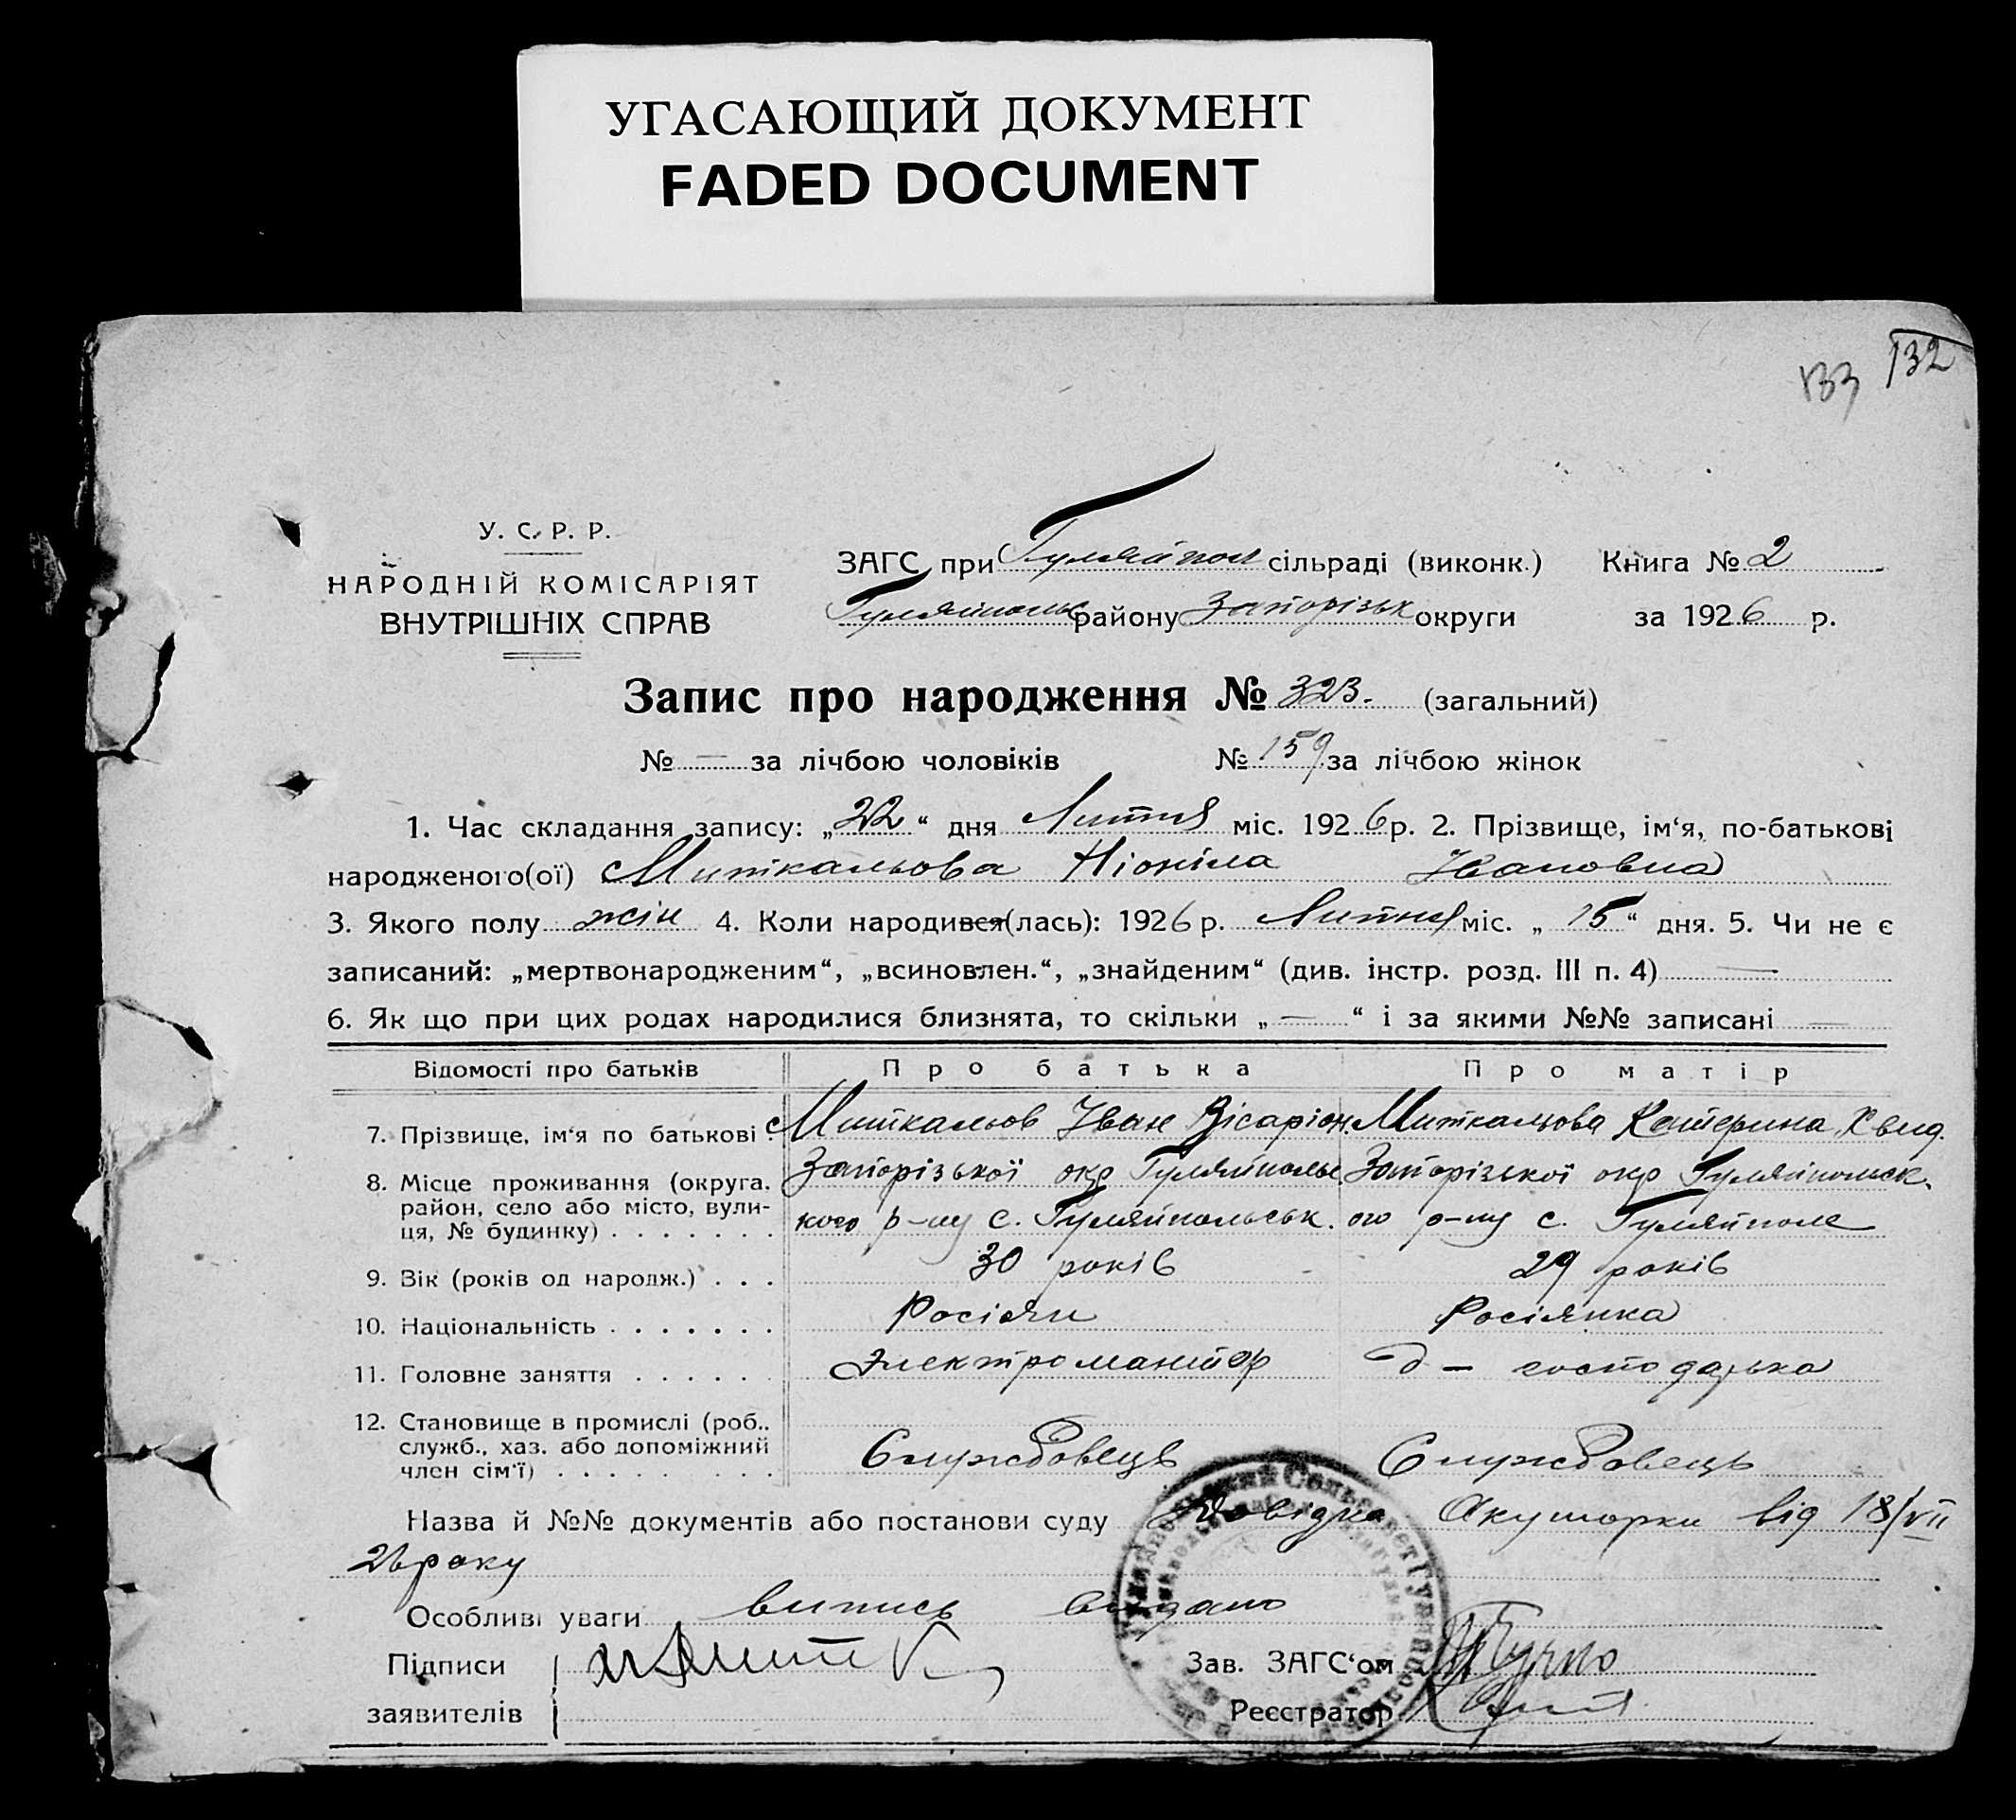 УГАСАЮЩИЙ ДОКУМЕНТ
FADED DOCUMENT
133 132
У. С. Р. Р.
НАРОДНІЙ КОМІСАРІЯТ
ВНУТРІШНІХ СПРАВ
ЗАГС при Гуляйпол сільраді (виконк.) Книга № 2
Гуляйпольс району Запорізьк округи за 1926 р.
Запис про народження № 323. (загальний)
№ — за лічбою чоловіків № 159 за лічбою жінок
1. Час складання запису: „22“ дня Липня міс. 1926 р. 2. Прізвище, ім‘я, по-батькові
народженого(ої) Миткальова Ніоніла Івановна
3. Якого полу жін 4. Коли народився(лась): 1926 р. Липня міс. „15“ дня. 5. Чи не є
записаний: „мертвонародженим“, „всиновлен.“, „знайденим“ (див. інстр. розд. III п. 4) —
6. Як що при цих родах народилися близнята, то скільки „—“ і за якими №№ записані —
Відомості про батьків Про батька Про матір
7. Прізвище, ім‘я по батькові . Миткальов Іван Вісаріон. Миткальова Катерина Хвед.
8. Місце проживання (округа, Запорізької окр Гуляйпольс Запорізької окр Гуляйпольск.
район, село або місто, вули- кого р-ну с. Гуляйпольськ. ого р-ну с. Гуляйполе
ця, № будинку) . . . . . . .
9. Вік (років од народж.) . . . 30 років 29 років
10. Національність . . . . . . . Росіян Росіянка
11. Головне заняття . . . . . . Электромантер д — господарька
12. Становище в промислі (роб.,
служб., хаз. або допоміжний Службовець Службовець
член сім‘ї) . . . . . . . . .
Назва й №№ документів або постанови суду Довідка Акушорки від 18/VII
26 року
Особливі уваги випись видано
Підписи Зав. ЗАГС‘ом
заявителів Реєстратор